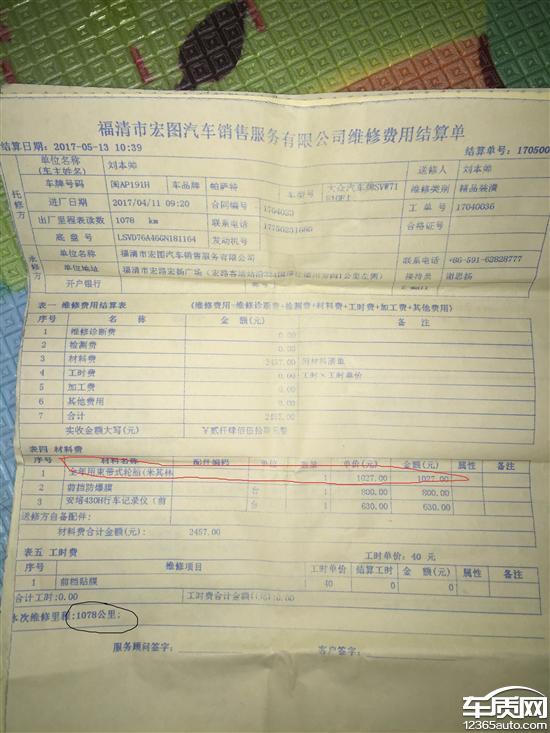 福清市宏图汽车销售服务有限公司维修费用结算单
结算日期: 2017-05-13 10:39 结算单号: 170500
托修方
单位名称(车主姓名) 刘本帅 送修人 刘本帅
车牌号码 闽AP191H 车品牌 帕萨特 车型号 大众汽车牌SVW71 维修类别 精品装潢
进厂日期 2017/04/11 09:20 合同编号 1704023 工单号 17040036
出厂里程表读数 1078 km 联系电话 17750251666 合格证号
底盘号 LSVD76A46GN181164 发动机号
承修方
单位名称 福清市宏图汽车销售服务有限公司 联系电话 +86-591-62828777
单位地址 福清市宏路宏扬广场 接待员 谢思扬
开户银行 账号
表一 维修费用结算表 (维修费用=维修诊断费+检测费+材料费+工时费+加工费+其他费用)
序号 名称 金额(元) 备注
1 维修诊断费 0.00
2 检测费 0.00
3 材料费 2457.00 附材料清单
4 工时费 0.00 工时×工时单价
5 加工费 0.00
6 其他费用 0.00
7 合计 2457.00
实收金额大写(元) ¥贰仟肆佰伍拾柒元整
表四 材料费
序号 材料名称 配件编码 单位 数量 单价(元) 金额(元) 属性 备注
1 全年用束带式轮胎(米其林 1 1027.00 1027.00
2 前挡防爆膜 台 1 800.00 800.00
3 安塔430H行车记录仪(前 台 1 630.00 630.00
送修方自备配件:
材料费合计金额(元): 2457.00
表五 工时费 工时单价: 40 元
序号 维修项目 工时单价 结算工时 金额(元) 属性 备注
1 前档贴膜 40 0 0
合计工时:0.00 工时费合计金额(元):0.00
本次维修里程:1078公里;
服务顾问签字: 客户签字:
车质网
12365auto.com